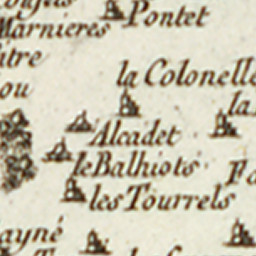 Pontet
Marnieres
la Colonelle
ou
la
Alcadet
le Balhiots
les Tourrels
ayné